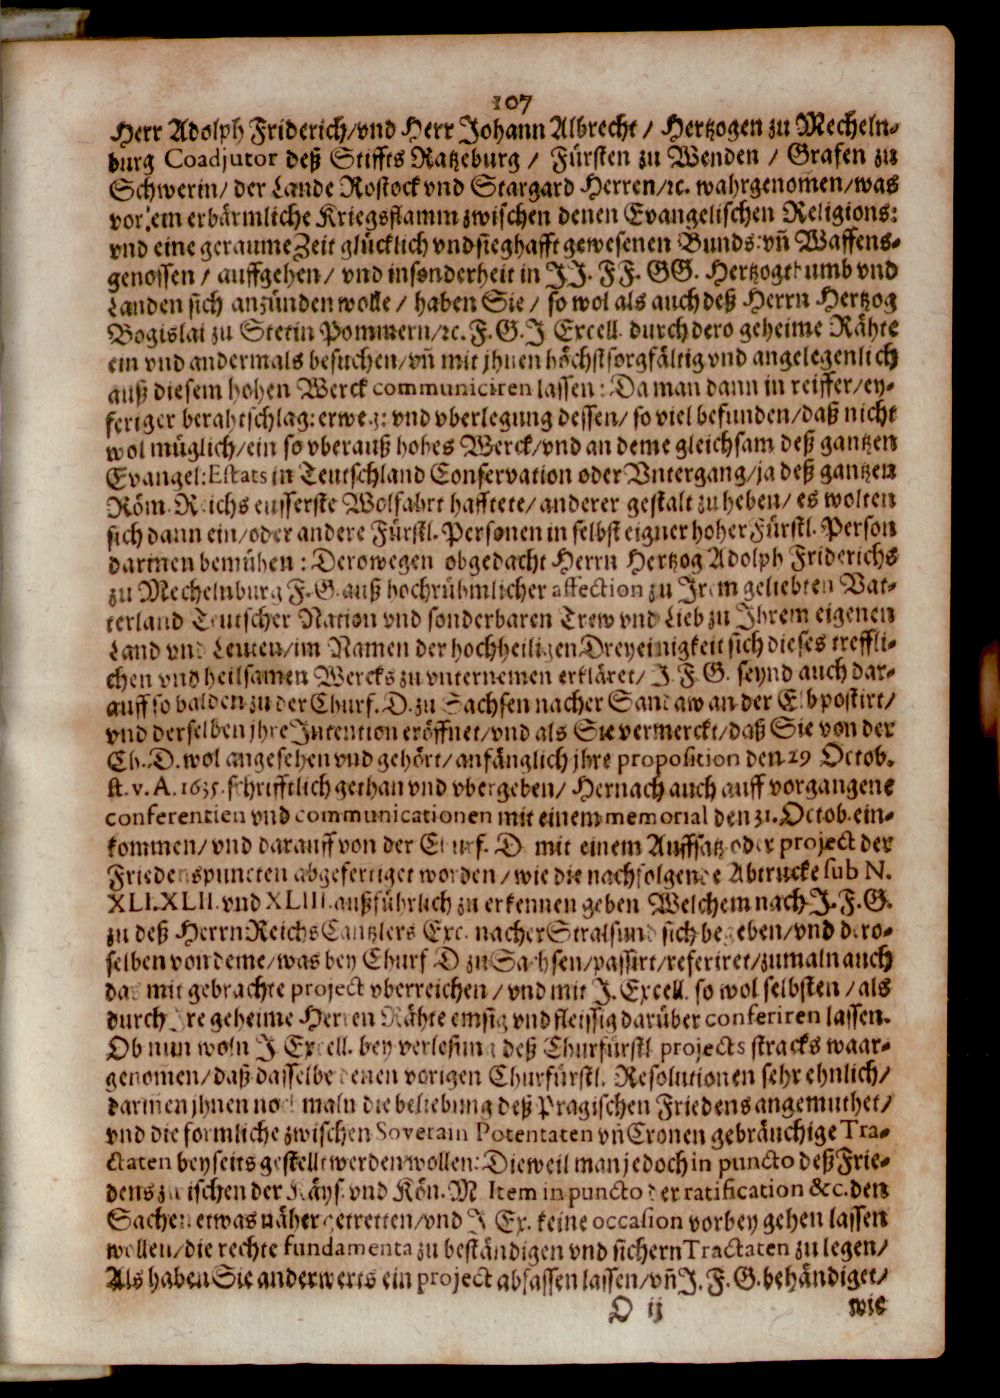 107
Herr Adolph Friderich/vnd Herr Johann Albrecht / Hertzogen zu Mecheln-
burg Coadjutor deß Stiffts Ratzeburg / Fürsten zu Wenden / Grafen zu
Schwerin/ der Lande Rostock vnd Stargard Herren/ꝛc. wahrgenomen/was
vor ein erbärmliche Kriegsflamm zwischen denen Evangelischen Religions:
vnd eine geraume Zeit glücklich vnd sieghafft gewesenen Bunds: vñ Waffens-
genossen / auffgehen/ vnd insonderheit in JJ. FF. GG. Hertzogthumb vnd
Landen sich anzünden wolle / haben Sie / so wol als auch deß Herrn Hertzog
Bogislai zu Stetin Pommern/ꝛc. F. G. J Excell. durch dero geheime Rähte
ein vnd andermals besuchen/vñ mit jhnen höchstsorgfältig vnd angelegenlich
auß diesem hohen Werck communiciren lassen: Da man dann in reiffer/ey-
feriger berahtschlag: erweg: vnd vberlegung dessen/ so viel befunden/daß nicht
wol müglich/ein so vberauß hohes Werck/vnd an deme gleichsam deß gantzen
Evangel: Estats in Teutschland Conservation oder Vntergang/ja deß gantzen
Röm. Reichs eusserste Wolfahrt hafftete/anderer gestalt zu heben/ es wolten
sich dann ein/oder andere Fürstl. Personen in selbst eigner hoher Fürstl. Person
darinnen bemühen: Derowegen obgedacht Herrn Hertzog Adolph Friderichs
zu Mechelnburg F. G. auß hochrühmlicher affection zu Jrem geliebten Vat-
terland Teutscher Nation vnd sonderbaren Trew vnd Lieb zu Jhrem eigenen
Land vnd Leuten/im Namen der hochheiligen Dreyeinigkeit sich dieses treffli-
chen vnd heilsamen Wercks zu vnternemen erkläret/ J. F. G. seynd auch dar-
auff so balden zu der Churf. D. zu Sachsen nacher Sandaw an der Elb postirt/
vnd derselben jhre Intention eröffnet/vnd als Sie vermerckt/daß Sie von der
Ch. D. wol angesehen vnd gehört/anfänglich jhre proposition den 29 Octob.
st. v. A. 1635. schrifftlich gethan vnd vbergeben/ Hernach auch auff vorgangene
conferentien vnd communicationen mit einem memorial den 31. Octob. ein-
kommen/vnd darauff von der Churf. D. mit einem Auffsatz oder project der
Friedenspuncten abgefertiget worden/wie die nachfolgende Abtrucke sub N.
XLI. XLII. vnd XLIII. außführlich zu erkennen geben Welchem nach J. F. G.
zu deß Herrn Reichs Cantzlers Exc. nacher Stralsund sich begeben/vnd dero-
selben von deme/was bey Churf D zu Sachsen/passirt/referiret/zumaln auch
das mit gebrachte project vberreichen / vnd mit J. Excell. so wol selbsten / als
durch Jre geheime Herren Rähte emsig vnd fleissig darüber conferiren lassen.
Ob nun woln J. Excell. bey verlesung deß Churfürstl projects stracks waar-
genomen/daß dasselbe denen vorigen Churfürstl. Resolutionen sehr ehnlich/
dariñen jhnen nochmaln die beliebung deß Pragischen Friedens angemuthet/
vnd die formliche zwischen Soverain Potentaten vñ Cronen gebräuchige Tra-
ctaten beyseits gestellt werden wollen: Dieweil man jedoch in puncto deß Frie-
dens zwischen der Käys. vnd Kön. M. Item in puncto der ratification &c. den
Sachen etwas näher getretten/vnd J. Ex. keine occasion vorbey gehen lassen
wollen/die rechte fundamenta zu beständigen vnd sichern Tractaten zu legen/
Als haben Sie anderwerts ein project abfassen lassen/vñ J. F. G. behändiget/
O ij
wie